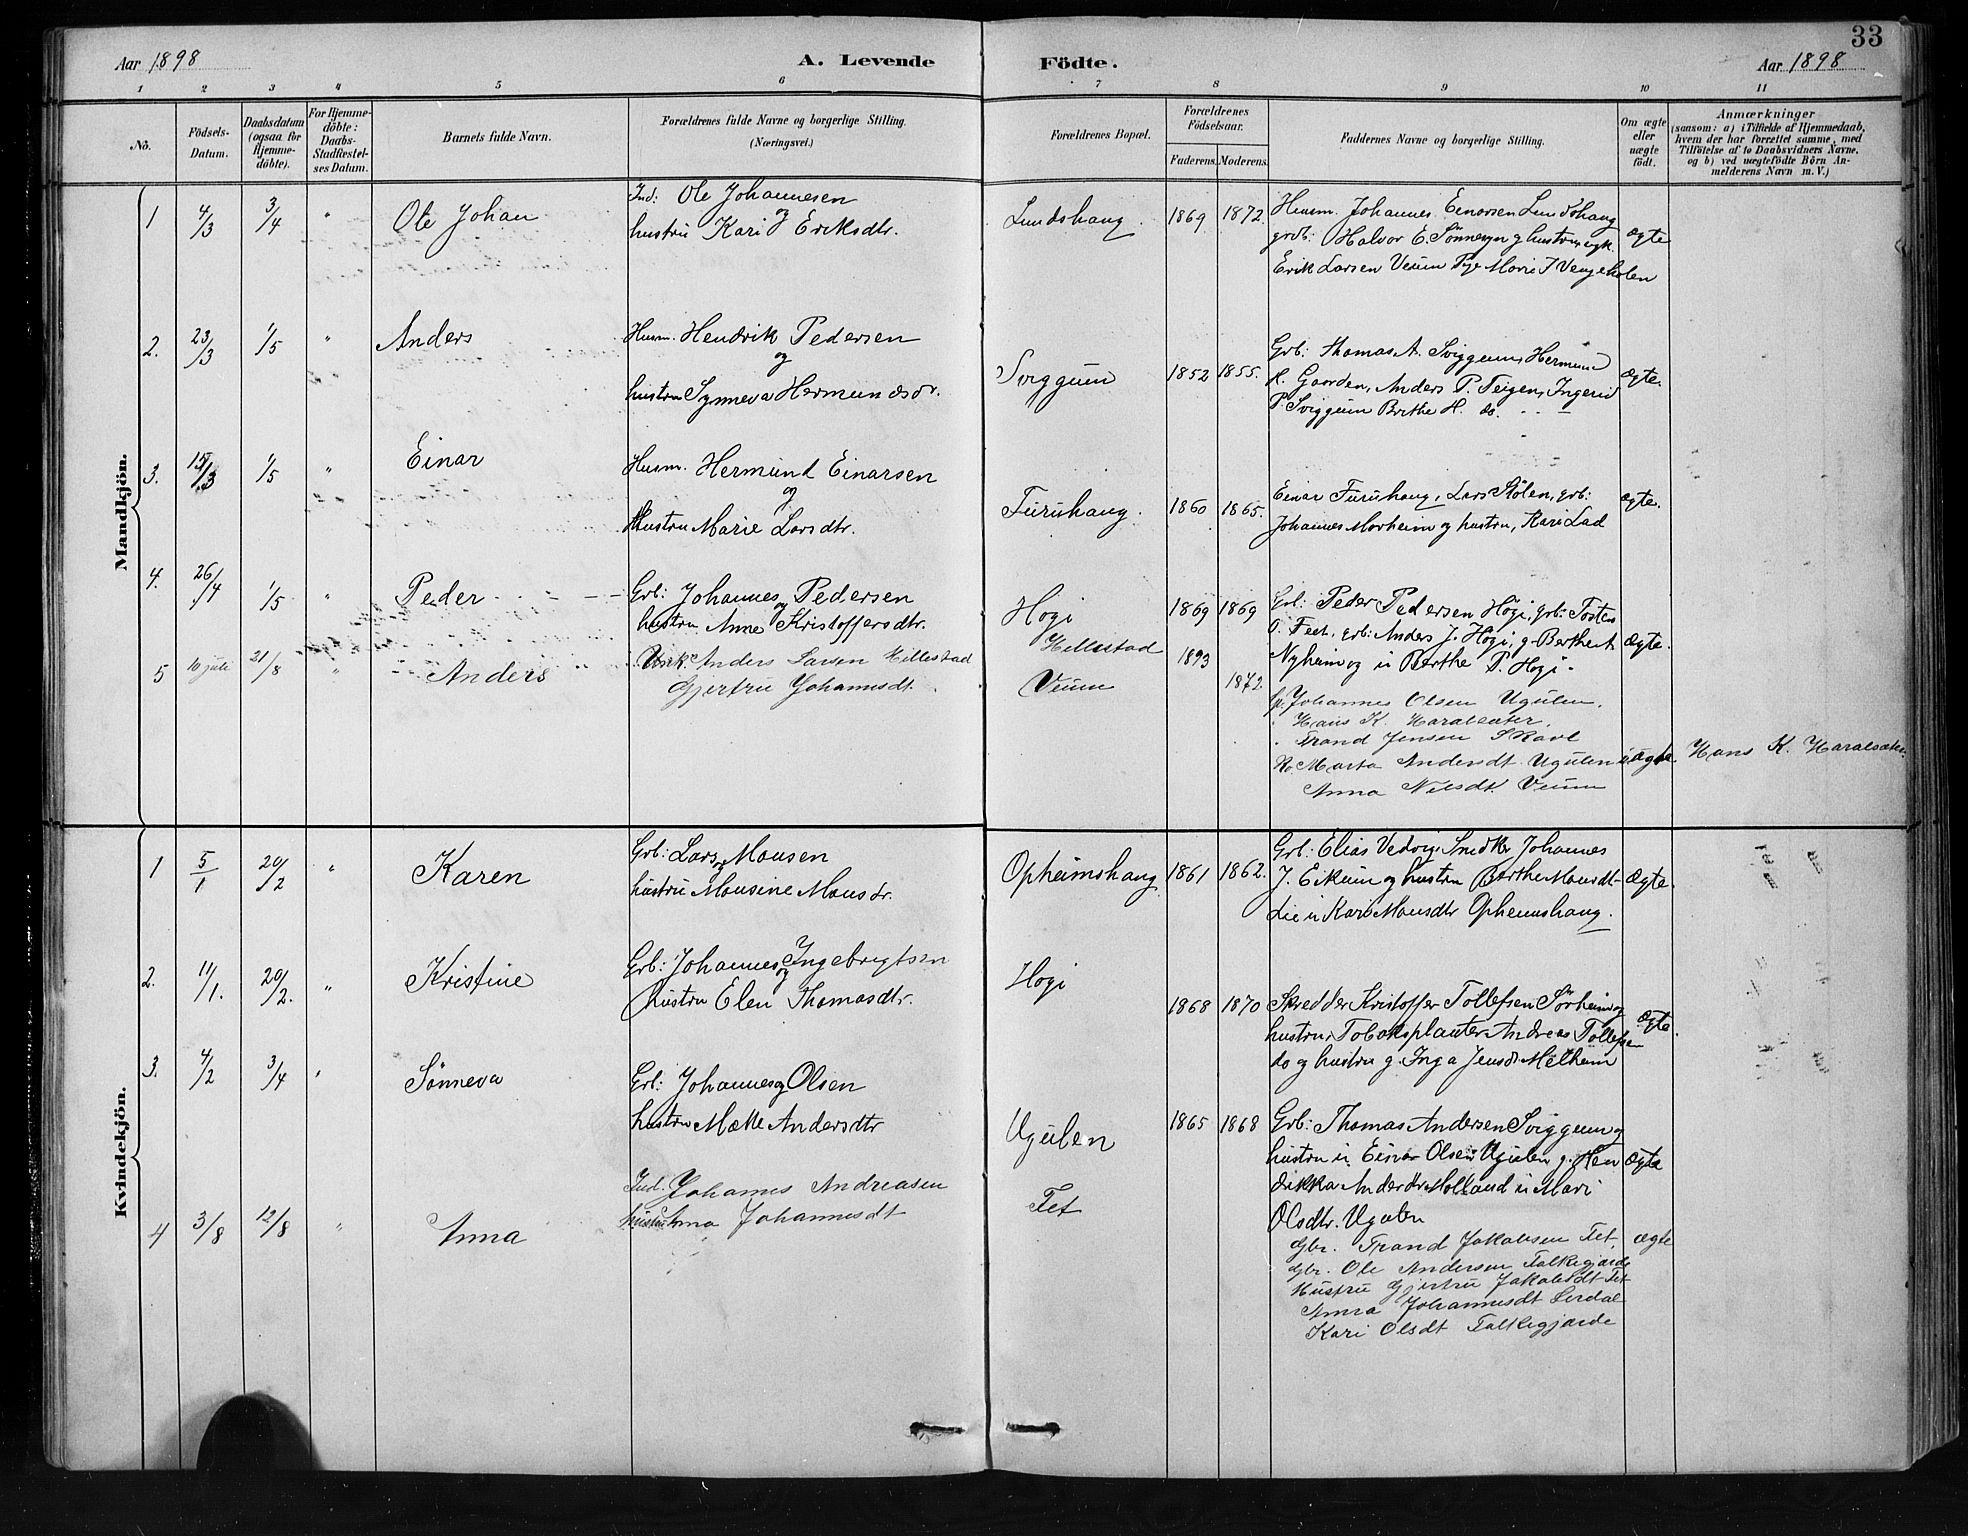 33
Aar 1898 A. Levende Födte. Aar 1898
1 2 3 4 5 6 7 8 9 10 11
No. Födsels-Datum. Daabsdatum (ogsaa for Hjemmedöbte). For Hjemmedöbte: Daabs-Stadfæstelses Datum. Barnets fulde Navn. Forældrenes fulde Navne og borgerlige Stilling. (Næringsvei.) Forældrenes Bopæl. Forældrenes Födselsaar. Faderens. Moderens. Faddernes Navne og borgerlige Stilling. Om ægte eller uægte födt. Anmærkninger (saasom: a) i Tilfælde af Hjemmedaab, hvem der har forrettet samme, med Tilföielse af to Daabsvidners Navne, og b) ved uægtefödte Börn Anmelderens Navn m. V.)
Mandkjön.
1 4/3 3/4 " Ole Johan Ind: Ole Johannesen og
hustru Kari Eriksdtr. Lundshaug 1869 1872 Husm. Johannes Einarsen Lundshaug
grdb: Halvor E. Sönnesyn g hustru ægte
Erik Larsen Veum Pige Marie J Vengeholen
2. 23/3 1/5 " Anders Husm. Hendrik Pedersen
og
hustru Synneva Hermundsdr. Sviggum 1852 1855. Grb: Thomas A. Sviggum, Hermund
H. Gaarden, Anders P. Teigen, Ingerid ægte.
P. Sviggum Berthe H. do. - - -
3. 15/3 1/5 " Einar Husm. Hermund Einarsen
og
Hustru Marie Larsdtr. Furuhaug. 1860 1865. Einar Furuhaug, Lars Stölen, grb: ægte.
Johannes Morheim og hustru, Kari Lad
4. 26/4 1/5 " Peder Grb: Johannes og Pedersen
hustru Anne Kristoffersdtr. Hogi 1869 1869 Grb: Peder Pedersen Högi, grb: Tosten
O. Fett, grb: Anders J. Högi, g Berthe A ægte.
Nyheim og u Berthe P. Hogi.
5 10 juli 21/8 " Anders Unk. Anders Larsen Hillestad
Gjertru Johannesdt. Hillestad
Veum 1893
1872 Johannes Olsen Ugulen.
Hans K. Haralsæter.
Trand Jensen Skavl
Marta Andersdt. Ugulen uægte. Hans K. Haralsæter
Anna Nilsdt. Veum
Kvindekjön.
1 5/1 20/2 " Karen Grb: Lars og Monsen
hustru Monsine Monsdr. Opheimshaug 1861 1862. Grb: Elias Vedvig Snedker Johannes
J. Eikum og hustru Berthe Monsdt- ægte.
die u Kari Monsdtr Opheimshaug.
2. 11/1. 20/2. " Kristine Grb: Johannes og Ingebrigtsen
hustru Elen Thomasdtr. Hogi 1868 1870 Skredder Kristoffer Tollefsen Sörheim og
hustru, Tobaksplanter Andreas Tollefsen ægte.
do og hustru g. Inga Jensd. Melheim
3. 4/2 3/4 " Sönneva Grb: Johannes og Olsen
hustru Mætte Andersdtr Ugulen 1865 1868 Grb: Thomas Andersen Sviggum og
hustru u. Einar Olsen Ugulen g. Hen ægte
drikka Andersdr Molland u Mari
Olsdtr. Ugulen
4 3/8 12/8 " Anna Ind. Johannes Andreasen
hustru Anna Johannesdt Fet Gbr. Trand Jakobsen Fet, ægte
Gbr. Ole Andersen Falkegjærde
Hustru Gjertru Jakobsdt Fet
Anna Johannesdt Lerdal
Kari Olsdt Falkegjærde